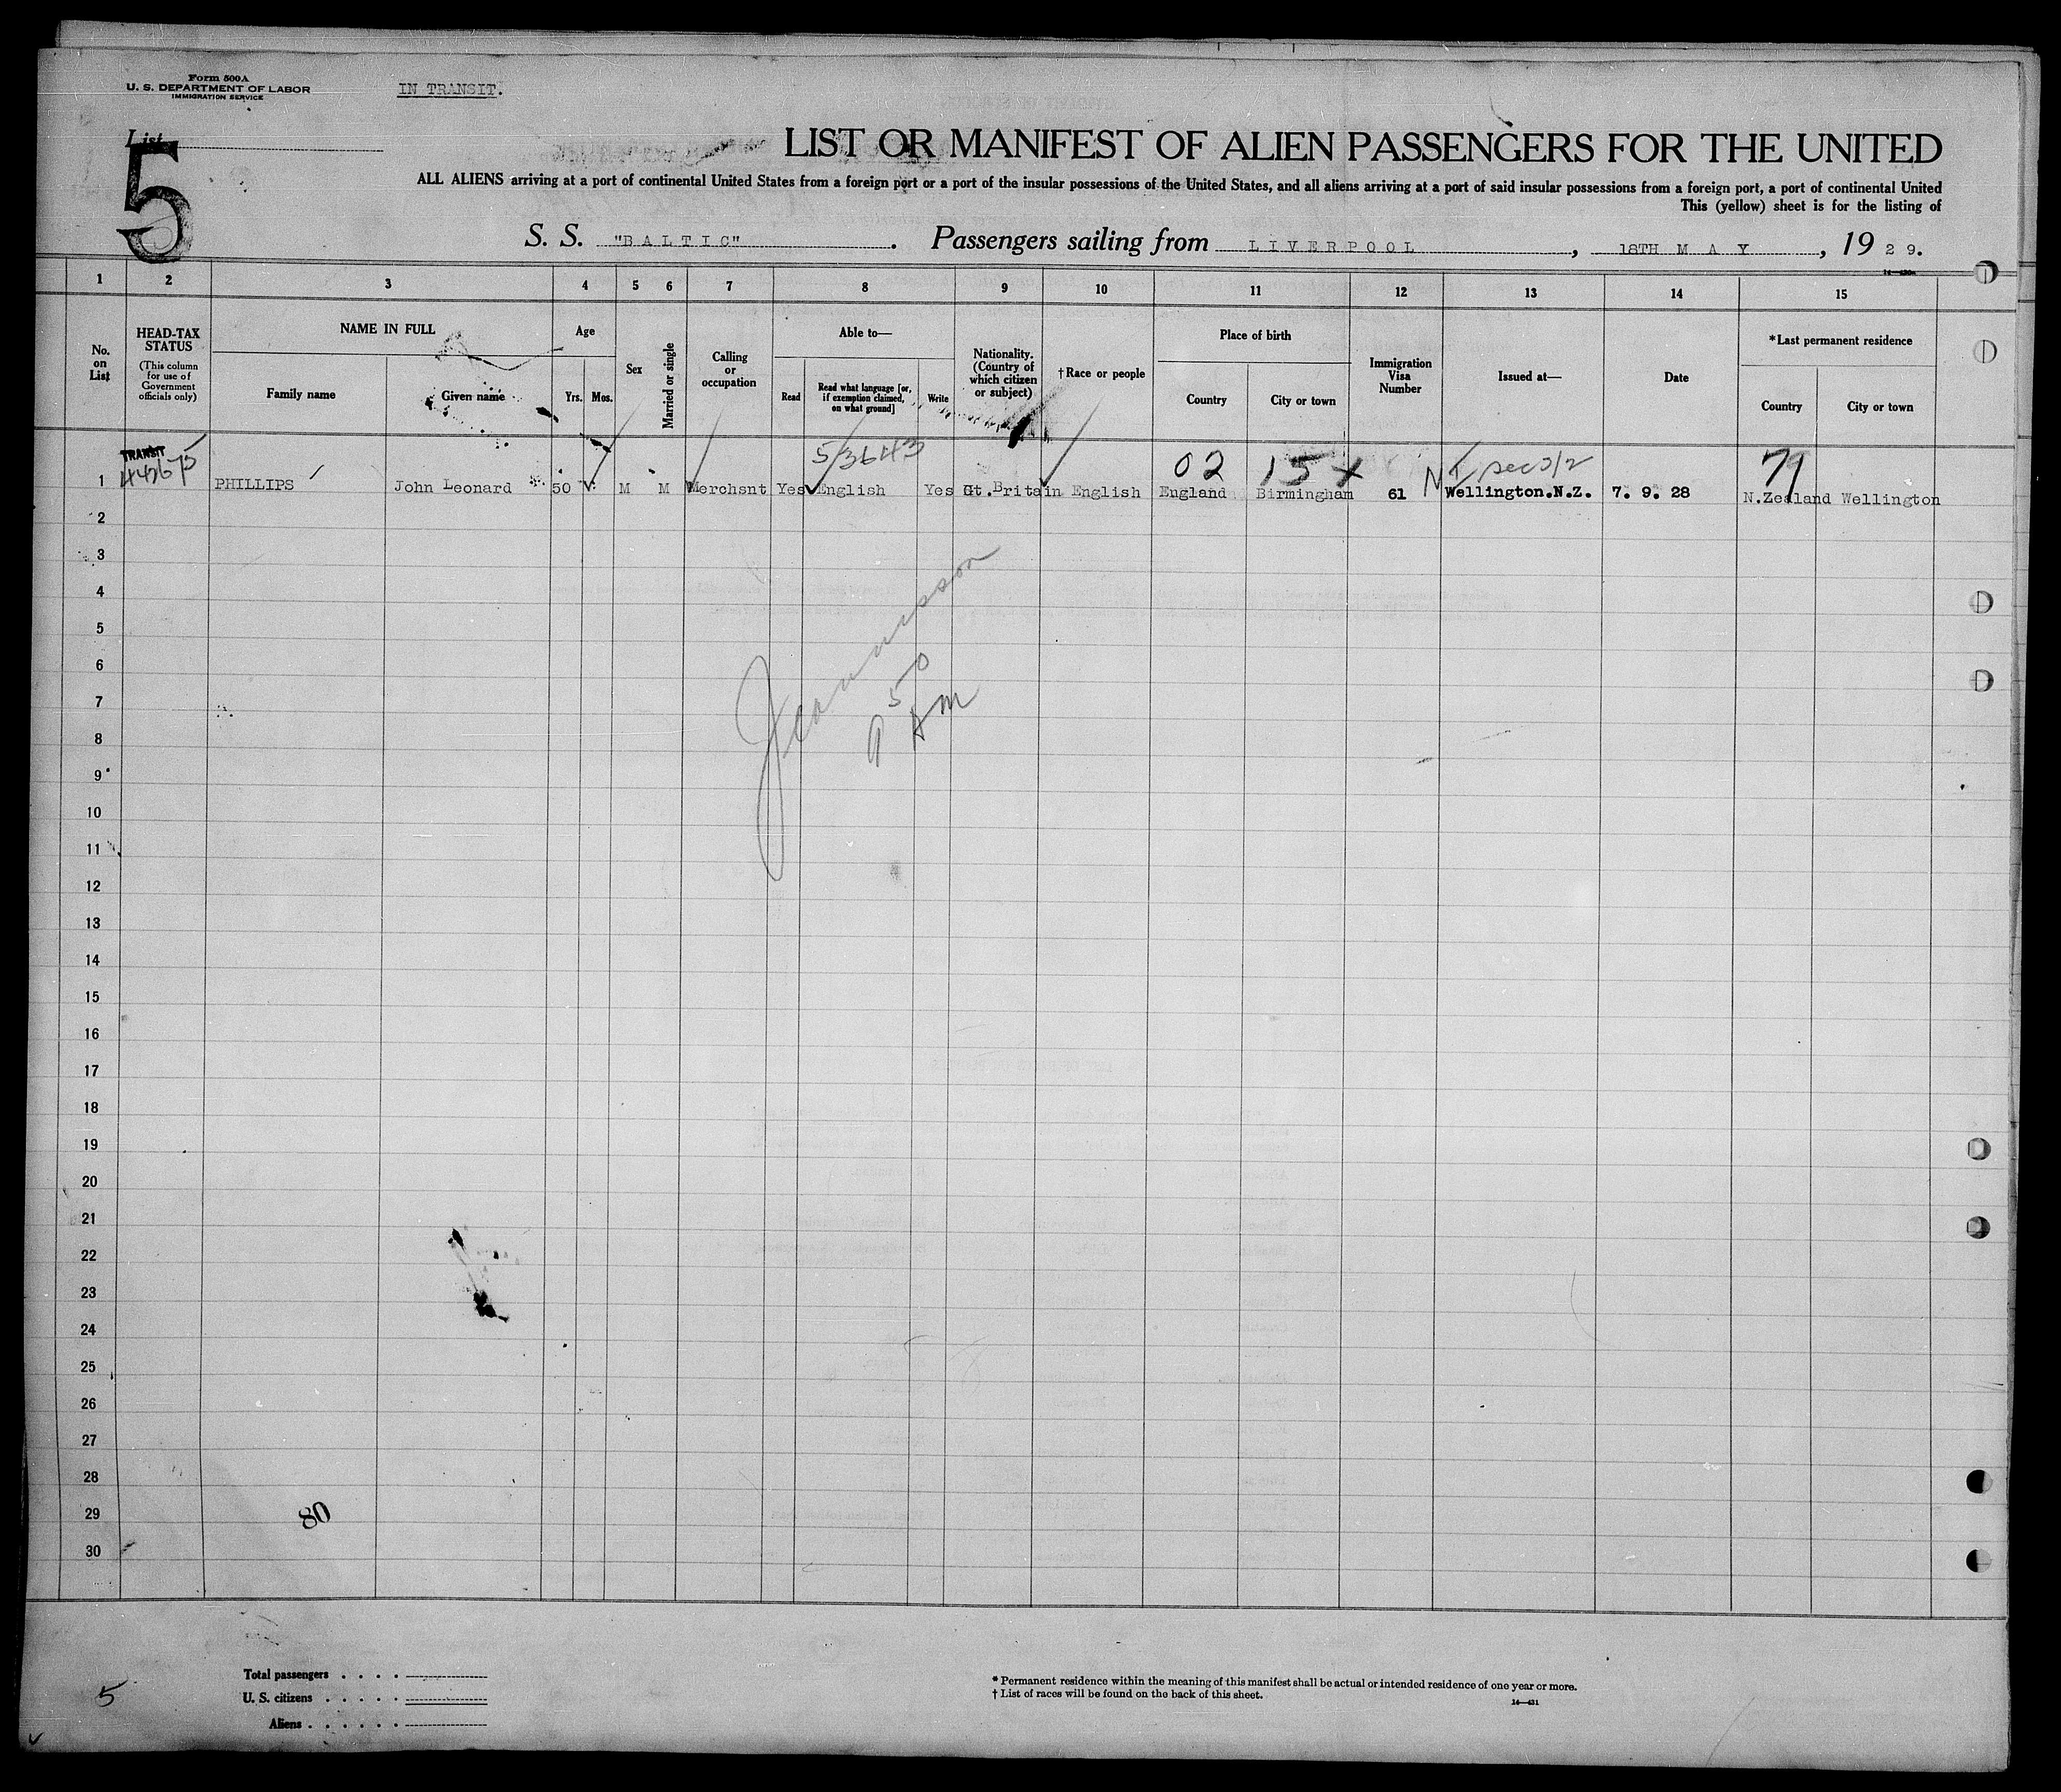 Form 500A
U. S. DEPARTMENT OF LABOR
IMMIGRATION SERVICE
IN TRANSIT.
List
5
LIST OR MANIFEST OF ALIEN PASSENGERS FOR THE UNITED
ALL ALIENS arriving at a port of continental United States from a foreign port or a port of the insular possessions of the United States, and all aliens arriving at a port of said insular possessions from a foreign port, a port of continental United
This (yellow) sheet is for the listing of
S. S. "BALTIC". Passengers sailing from LIVERPOOL, 18TH MAY, 1929.
1 2 3 4 5 6 7 8 9 10 11 12 13 14 15
No. on List
HEAD-TAX STATUS
(This column for use of Government officials only)
NAME IN FULL
Family name
Given name
Age
Yrs. Mos.
Sex
Married or single
Calling or occupation
Able to—
Read
Read what language [or, if exemption claimed, on what ground]
Write
Nationality. (Country of which citizen or subject)
†Race or people
Place of birth
Country
City or town
Immigration Visa Number
Issued at—
Date
*Last permanent residence
Country
City or town
TRANSIT
5/3643 02 15 x 71
1 PHILLIPS John Leonard 50 M M Merchsnt Yes English Yes Gt.Britain English England Birmingham 61 Wellington.N.Z. 7. 9. 28 N.Zealand Wellington
2
3
4
5
6
7
8
9
10
11
12
13
14
15
16
17
18
19
20
21
22
23
24
25
26
27
28
29
30
9 50 AM
80
Total passengers
U. S. citizens
Aliens
5
* Permanent residence within the meaning of this manifest shall be actual or intended residence of one year or more.
† List of races will be found on the back of this sheet.